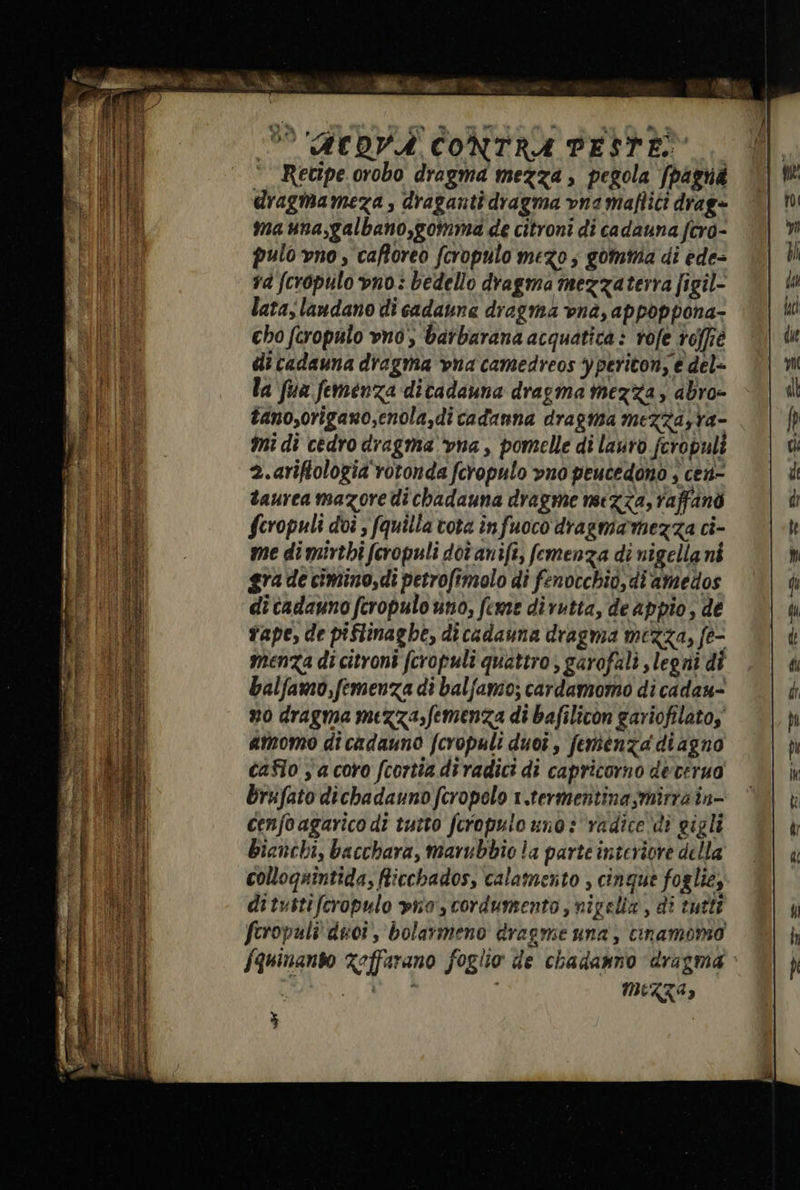 ACQVA CONTRA PESTE.
Recipe orobo dragma mezza, pegola ſpagna
dragma meza, draganti dragma vna maſtici drag-
ma una, galbano, gomma de citroni di cadauna ſcro-
pulo vno, caſtoreo ſcropulo mezo, gomma di ede-
ra ſcropulo vno: bedello dragma mezza terra ſigil-
lata, laudano di cadauna dragma vna, appoppona-
cho ſcropulo vno, barbarana acquatica: roſe roſſie
di cadauna dragma vna camedreos ypericon, e del-
la ſua ſemenza di cadauna dragma mezza, abro-
tano, origano, enola, di cadauna dragma mezza, ra-
mi di cedro dragma vna, pomelle di lauro ſcropuli
2. ariſtologia rotonda ſcropulo vno peucedono, cen-
taurea mazore di chadauna dragme mezza, raffano
ſcropuli doi, ſquilla cota in fuoco dragma mezza ci-
me di mirthi ſcropuli doi aniſi, ſemenza di nigella ni
gra de cimino, di petroſimolo di fenocchio, di amedos
di cadauno ſcropulo uno, ſeme di rutta, de appio, de
rape, de piſtinaghe, di cadauna dragma mezza, ſe-
menza di citroni ſcropuli quattro, garofali, legni di
balſamo, ſemenza di balſamo; cardamomo di cadau-
no dragma mezza, ſemenza di baſilicon gariofilato,
amomo di cadauno ſcropuli duoi, ſemenza di agno
caſto, a coro ſcortia di radici di capricorno de ceruo
bruſato di chadauno ſcropolo 1. termentina, mirra in-
cenſo agarico di tutto ſcropulo uno: radice di gigli
bianchi, bacchara, marubbio la parte interiore della
colloquintida, ſticchados, calamento, cinque foglie,
di tutti ſcropulo vno, cordumento, nigella, di tutti
ſcropuli duoi, bolarmeno dragme una, cinamomo
ſquinanto zaffarano foglio de chadauno dragma
mezza,